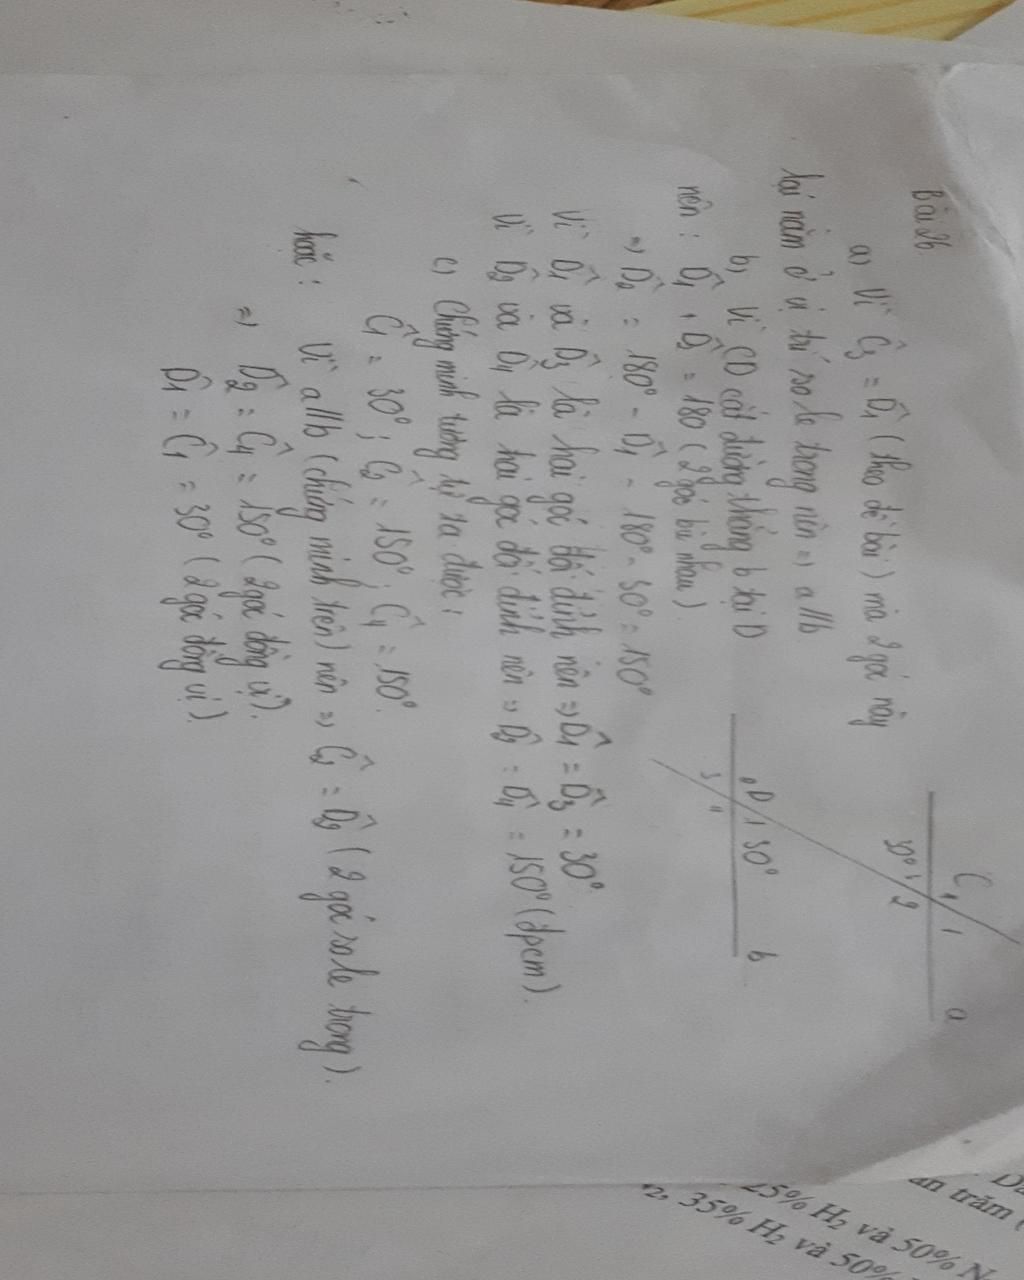 Bài 26.
a) Vì Ĉ3 = D̂1 (theo đề bài) mà 2 góc này
lại nằm ở vị trí so le trong nên => a//b
b, Vì CD cắt đường thẳng b tại D
nên: D̂1 + D̂2 = 180 (2 góc bù nhau)
=> D̂2 = 180° - D̂1 = 180° - 30° = 150°
Vì D̂1 và D̂3 là hai góc đối đỉnh nên => D̂1 = D̂3 = 30°
Vì D̂2 và D̂4 là hai góc đối đỉnh nên => D̂2 = D̂4 = 150° (đpcm).
c) Chứng minh tương tự ta được:
Ĉ1 = 30°; Ĉ2 = 150°; Ĉ4 = 150°.
hoặc: Vì a//b (chứng minh trên) nên => Ĉ2 = D̂2 (2 góc so le trong).
=> D̂2 = Ĉ4 = 150° (2 góc đồng vị).
D̂1 = Ĉ1 = 30° (2 góc đồng vị).
C 4 1 a
30° 3 2
2 D 1 30° b
3 4
25% H2 và 50% N
35% H2 và 50%